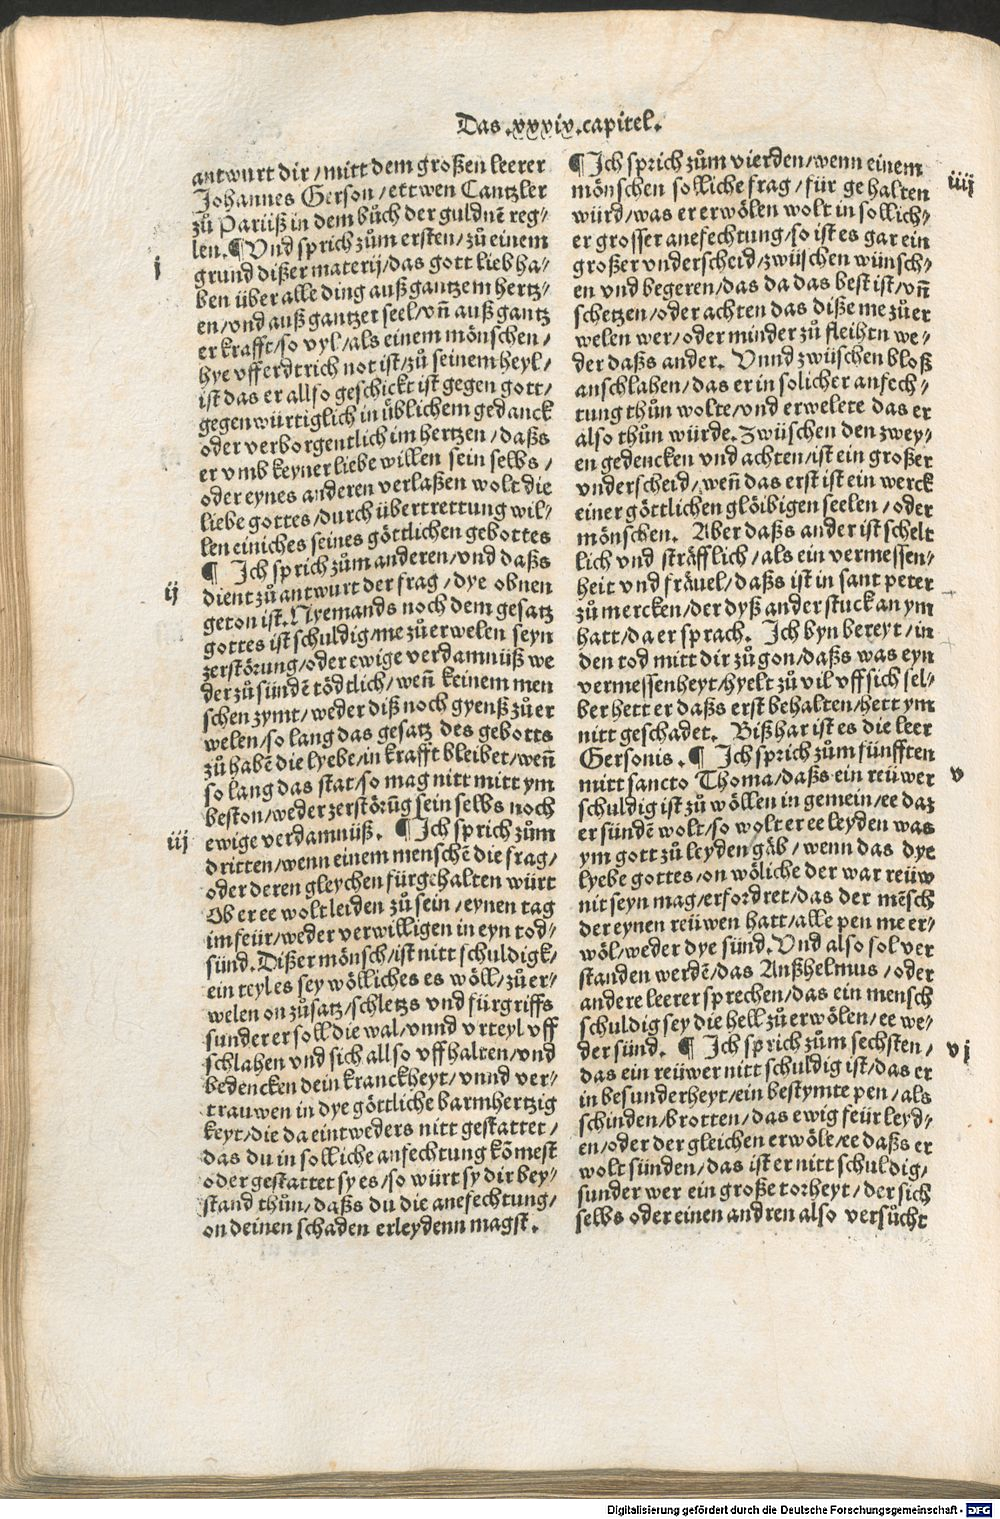 Das .xxxix. capitel.
antwurt dir / mitt dem großen leerer
Johannes Gerson / ettwen Cantzler
zů Pariiß in dem bůch der guldnē reg⸗
len. ¶ Vnd sprich zům ersten / zů einem
j
grund dißer materij / das gott lieb ha⸗
ben über alle ding auß gantzem hertz⸗
en / vnd auß gantzer seel / vñ auß gantz
er krafft / so vyl / als einem mönschen /
hye vff erdtrich not ist / zů seinem heyl /
ist das er allso geschickt ist gegen gott /
gegenwürtiglich in üblichem gedanck
oder verborgentlich im hertzen / daßs
er vmb keyner liebe willen sein selbs /
oder eynes anderen verlaßen wolt die
liebe gottes / durch übertrettung wil⸗
len einiches seines göttlichen gebottes
¶ Ich sprich zům anderen / vnd daßs
ij
dient zů antwurt der frag / dye obnen
geton ist. Nyemands noch dem gesatz
gottes ist schuldig / me zů erwelen seyn
zerstörung / oder ewige verdamnüß we
der zů sündē tödtlich / weñ keinem men
schen zymt / weder diß noch gyenß zů er
welen / so lang das gesatz des gebotts
zů habē die lyebe / in krafft bleibet / weñ
so lang das stat / so mag nitt mitt ym
beston / weder zerstörūg sein selbs noch
ewige verdamnüß. ¶ Ich sprich zům
iij
dritten / wenn einem menschē die frag /
oder deren gleychen fürgehalten würt
Ob er ee wolt leiden zů sein / eynen tag
im feür / weder verwilligen in eyn tod⸗
sünd. Dißer mönsch / ist nitt schuldig k⸗
ein teyl es sey wölliches es wöll / zů er⸗
welen on zůsatz / schletzs vnd fürgriffs
sunder er soll die wal / vnnd vrteyl vff
schlahen vnd sich allso vff halten / vnd
bedencken dein kranckheyt / vnnd ver⸗
trauwen in dye göttliche barmhertzig
keyt / die da eintweders nitt gestattet /
das du in solliche anfechtung kōmest
oder gestattet sy es / so würt sy dir bey⸗
stand thůn / daßs du die anefechtung /
on deinen schaden erleydenn magst.
¶ Ich sprich zům vierden / wenn einem
iiij
mönschen solliche frag / für gehalten
würd / was er erwölen wolt in sollich⸗
er grosser anefechtung / so ist es gar ein
großer vnderscheid / zwüschen wünsch⸗
en vnd begeren / das da das best ist / vñ
schetzen / oder achten das diße me zů er
welen wer / oder minder zů fleihtn we⸗
der daßs ander. Vnnd zwüschen bloß
anschlahen / das er in solicher anfech⸗
tung thůn wolte / vnd erwelete das er
also thůn würde. Zwüschen den zwey⸗
en gedencken vnd achten / ist ein großer
vnderscheid / weñ das erst ist ein werck
einer göttlichen glöibigen seelen / oder
mönschen. Aber daßs ander ist schelt
lich vnd sträfflich / als ein vermessen⸗
heit vnd fräuel / daßs ist in sant peter
zů mercken / der dyß ander stuck an ym
hatt / da er sprach. Ich byn bereyt / in
den tod mitt dir zů gon / daßs was eyn
vermessenheyt / hyelt zů vil vff sich sel⸗
ber hett er daßs erst behalten / hett ym
nitt geschadet. Bißhar ist es die leer
Gersonis. ¶ Ich sprich zům fünfften
mitt sancto Thoma / daßs ein reüwer
v
schuldig ist zů wöllen in gemein / ee daz
er sündē wolt / so wolt er ee leyden was
ym gott zů leyden gäb / wenn das dye
lyebe gottes / on wöliche der war reüw
nit seyn mag / erfordret / das der mēsch
der eynen reüwen hatt / alle pen me er⸗
wöl / weder dye sünd. Vnd also sol ver
standen werdē / das Anßhelmus / oder
andere leerer sprechen / das ein mensch
schuldig sey die hell zů erwölen / ee we⸗
der sünd. ¶ Ich sprich zům sechsten /
vj
das ein reüwer nitt schuldig ist / das er
in besunderheyt / ein bestymte pen / als
schinden / brotten / das ewig feür leyd⸗
en / oder der gleichen erwöle / ee daßs er
wolt sünden / das ist er nitt schuldig /
sunder wer ein große torheyt / der sich
selbs oder einen andren also versůcht
Digitalisierung gefördert durch die Deutsche Forschungsgemeinschaft - DFG